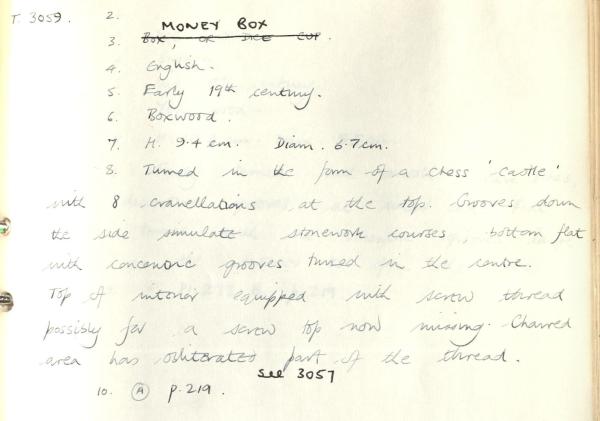 T. 3059. 2.
MONEY BOX
3. BOX, OR DICE CUP.
4. English.
5. Early 19th century.
6. Boxwood.
7. H. 9.4 cm. Diam. 6.7 cm.
8. Turned in the form of a chess 'castle'
with 8 cranellations at the top. Grooves down
the side simulate stonework courses, bottom flat
with concentric grooves turned in the centre.
Top of interior equipped with screw thread
possibly for a screw top now missing. Charred
area has obliterated part of the thread.
See 3057
10. (A) p. 219.